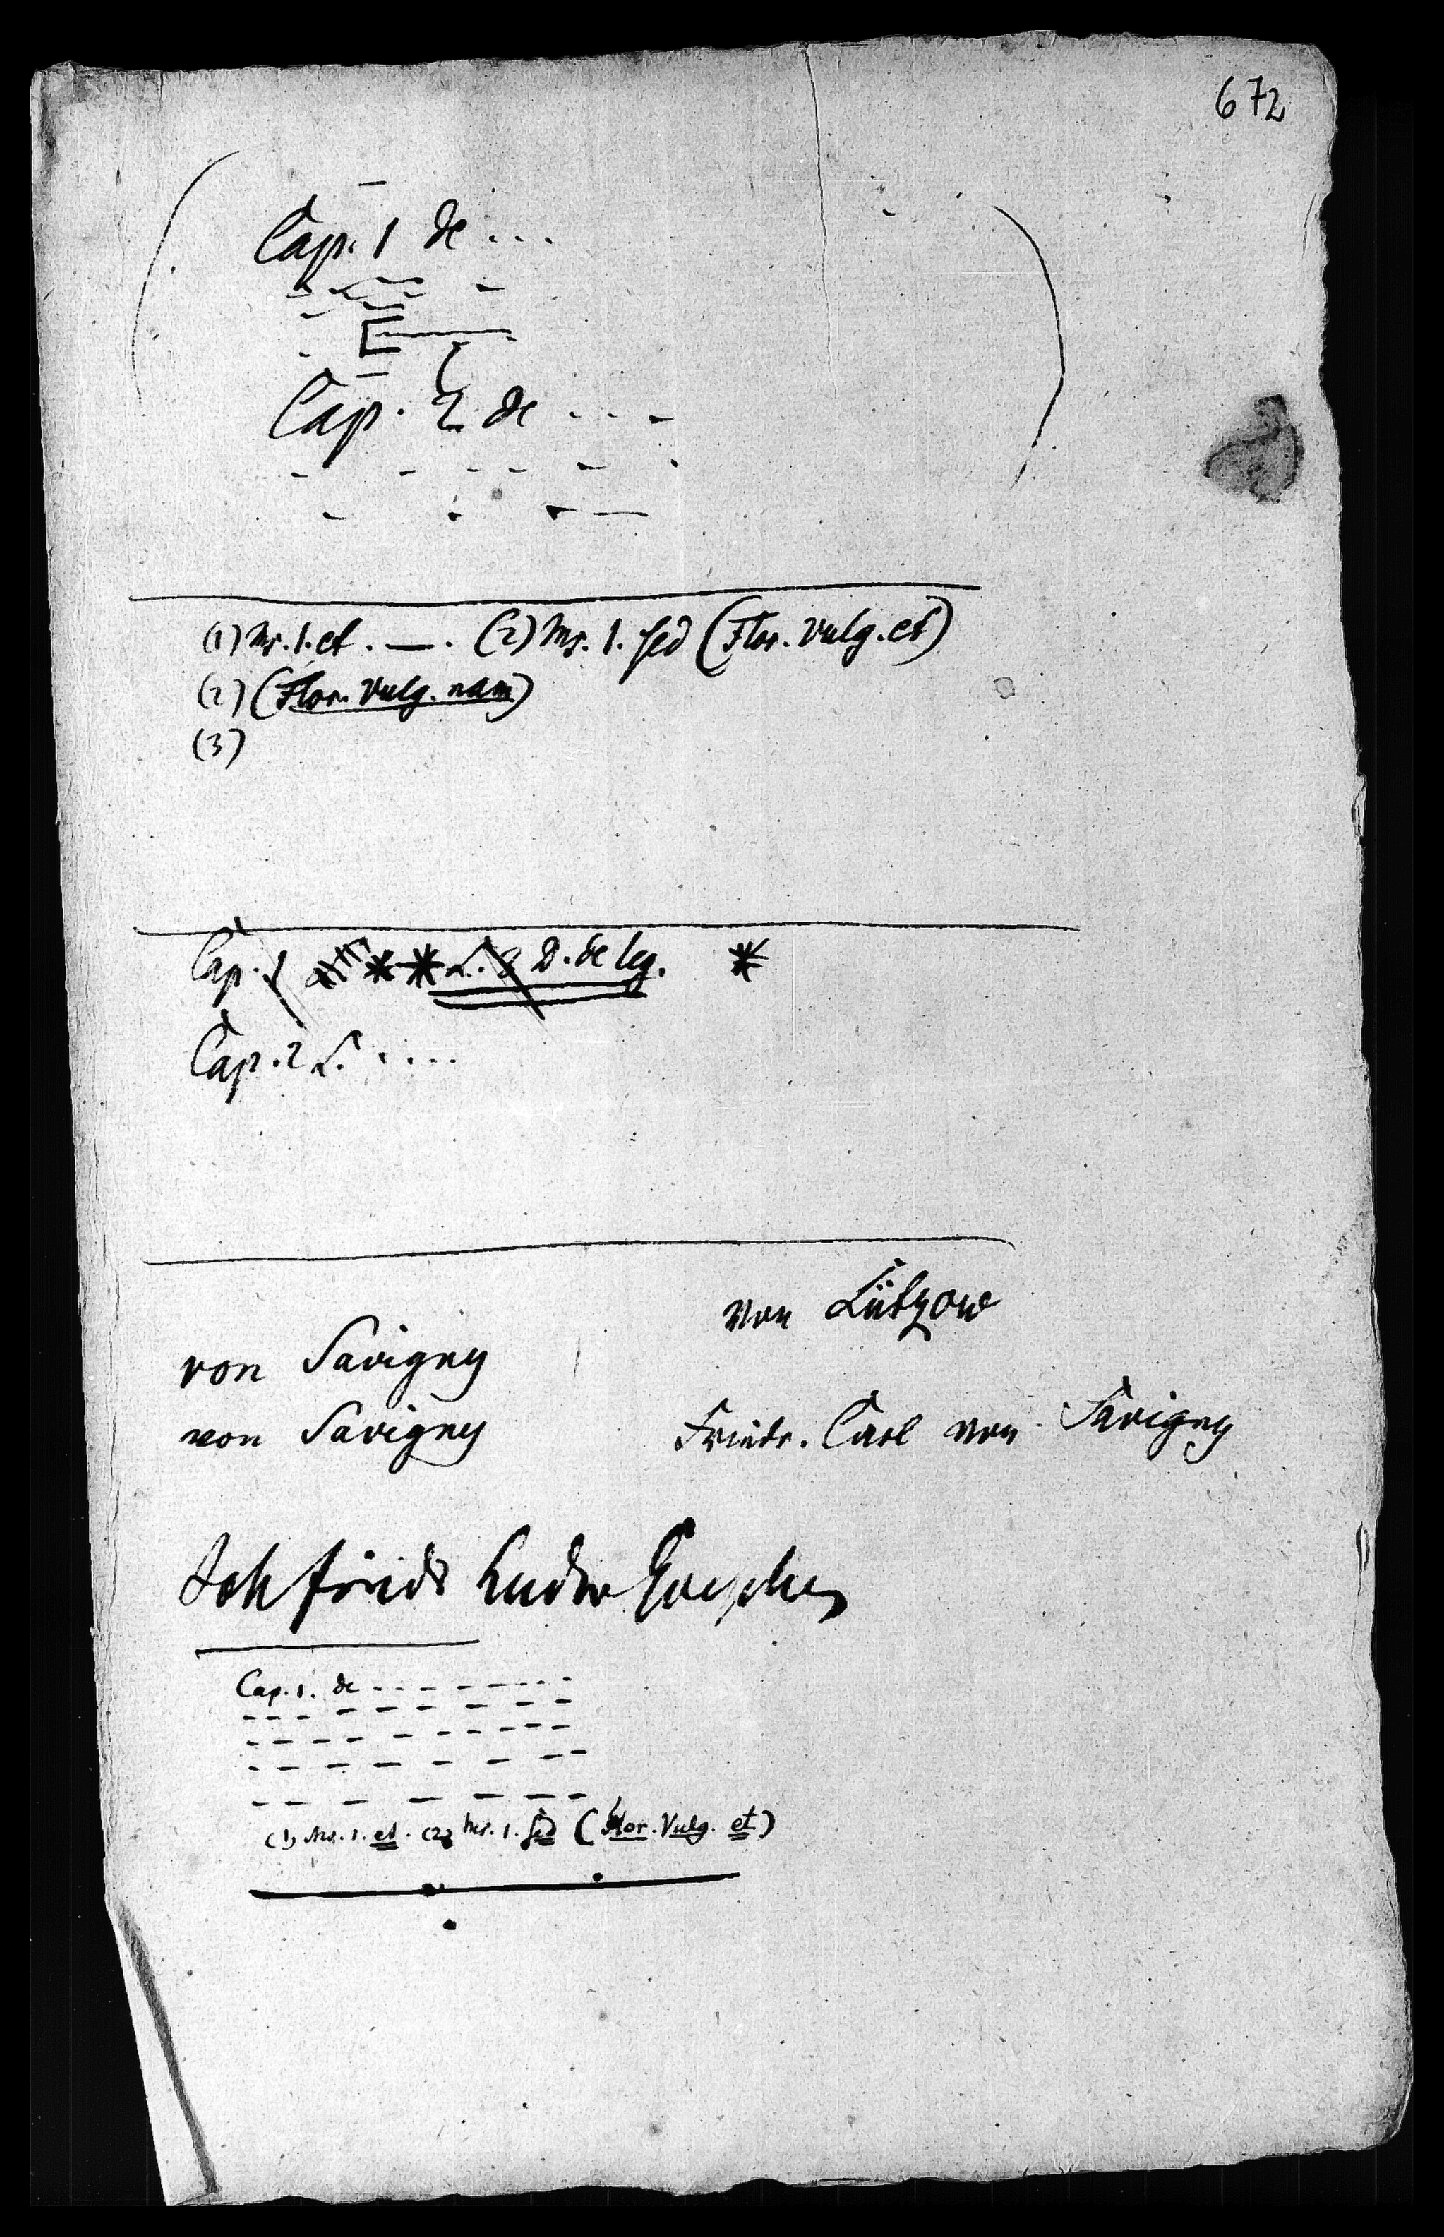 672
Cap. 1 de ...
Cap. 2 de - - -
(1) Ms. 1. et. —. (2) Ms. 1. sed (Flor. Vulg. et)
(2) (Flor. Vulg. nam)
(3)
Cap. 1 L. 3 D. de leg.
Cap. 2 L. ....
von Lützow
von Savigny
von Savigny
Friedr. Carl von Savigny
Joh Friedr Ludw Goeschen
Cap. 1. de - - - - - - - - -
(1) Ms. 1. et. (2) Ms. 1. sed (Flor. Vulg. et)